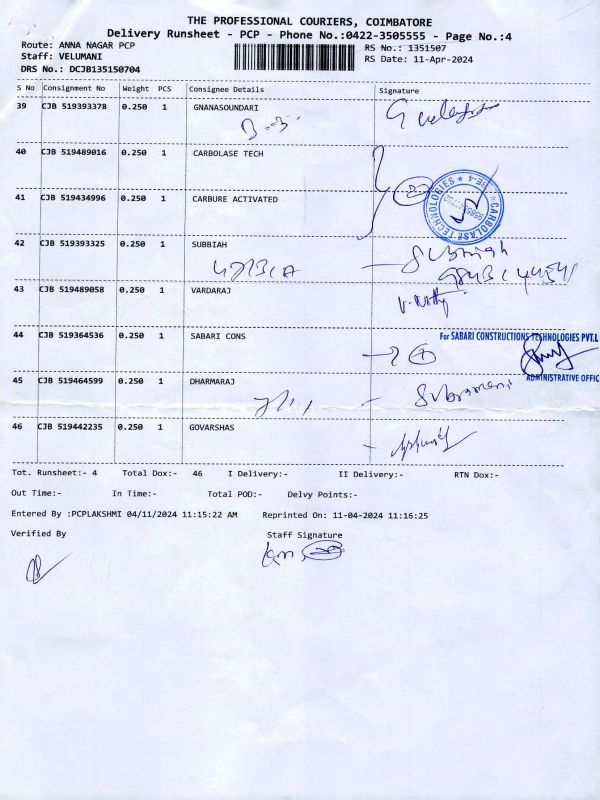 THE PROFESSIONAL COURIERS, COIMBATORE
Delivery Runsheet - PCP - Phone No.:0422-3505555 - Page No.:4
Route: ANNA NAGAR PCP RS No.: 1351507
Staff: VELUMANI RS Date: 11-Apr-2024
DRS No.: DCJB135150704
S No Consignment No Weight PCS Consignee Details Signature
39 CJB 519393378 0.250 1 GNANASOUNDARI
40 CJB 519489016 0.250 1 CARBOLASE TECH
CARBOLASE TECHNOLOGIES
41 CJB 519434996 0.250 1 CARBURE ACTIVATED
42 CJB 519393325 0.250 1 SUBBIAH
Subbiah
43 CJB 519489058 0.250 1 VARDARAJ
44 CJB 519364536 0.250 1 SABARI CONS
For SABARI CONSTRUCTIONS TECHNOLOGIES PVT.L
ADMINISTRATIVE OFFIC
45 CJB 519464599 0.250 1 DHARMARAJ
Subramani
46 CJB 519442235 0.250 1 GOVARSHAS
Tot. Runsheet:- 4 Total Dox:- 46 I Delivery:- II Delivery:- RTN Dox:-
Out Time:- In Time:- Total POD:- Delvy Points:-
Entered By :PCPLAKSHMI 04/11/2024 11:15:22 AM Reprinted On: 11-04-2024 11:16:25
Verified By Staff Signature